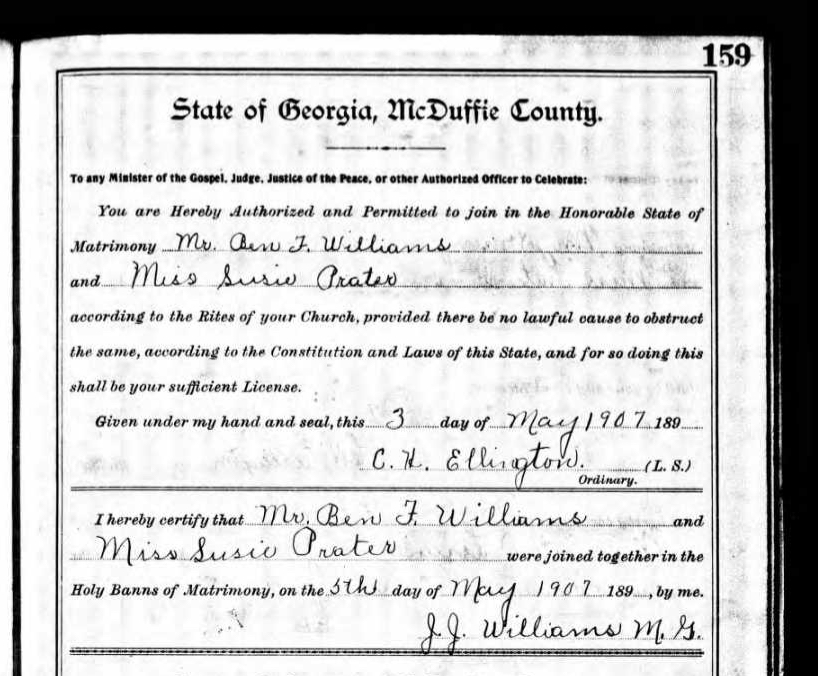 159
State of Georgia, McDuffie County.
To any Minister of the Gospel, Judge, Justice of the Peace, or other Authorized Officer to Celebrate:
You are Hereby Authorized and Permitted to join in the Honorable State of
Matrimony Mr. Ben F. Williams
and Miss Susie Prater
according to the Rites of your Church, provided there be no lawful cause to obstruct
the same, according to the Constitution and Laws of this State, and for so doing this
shall be your sufficient License.
Given under my hand and seal, this 3 day of May 1907 189
C. H. Ellington. (L. S.)
Ordinary.
I hereby certify that Mr. Ben F. Williams and
Miss Susie Prater were joined together in the
Holy Banns of Matrimony, on the 5th day of May 1907 189 , by me.
J. J. Williams M. G.